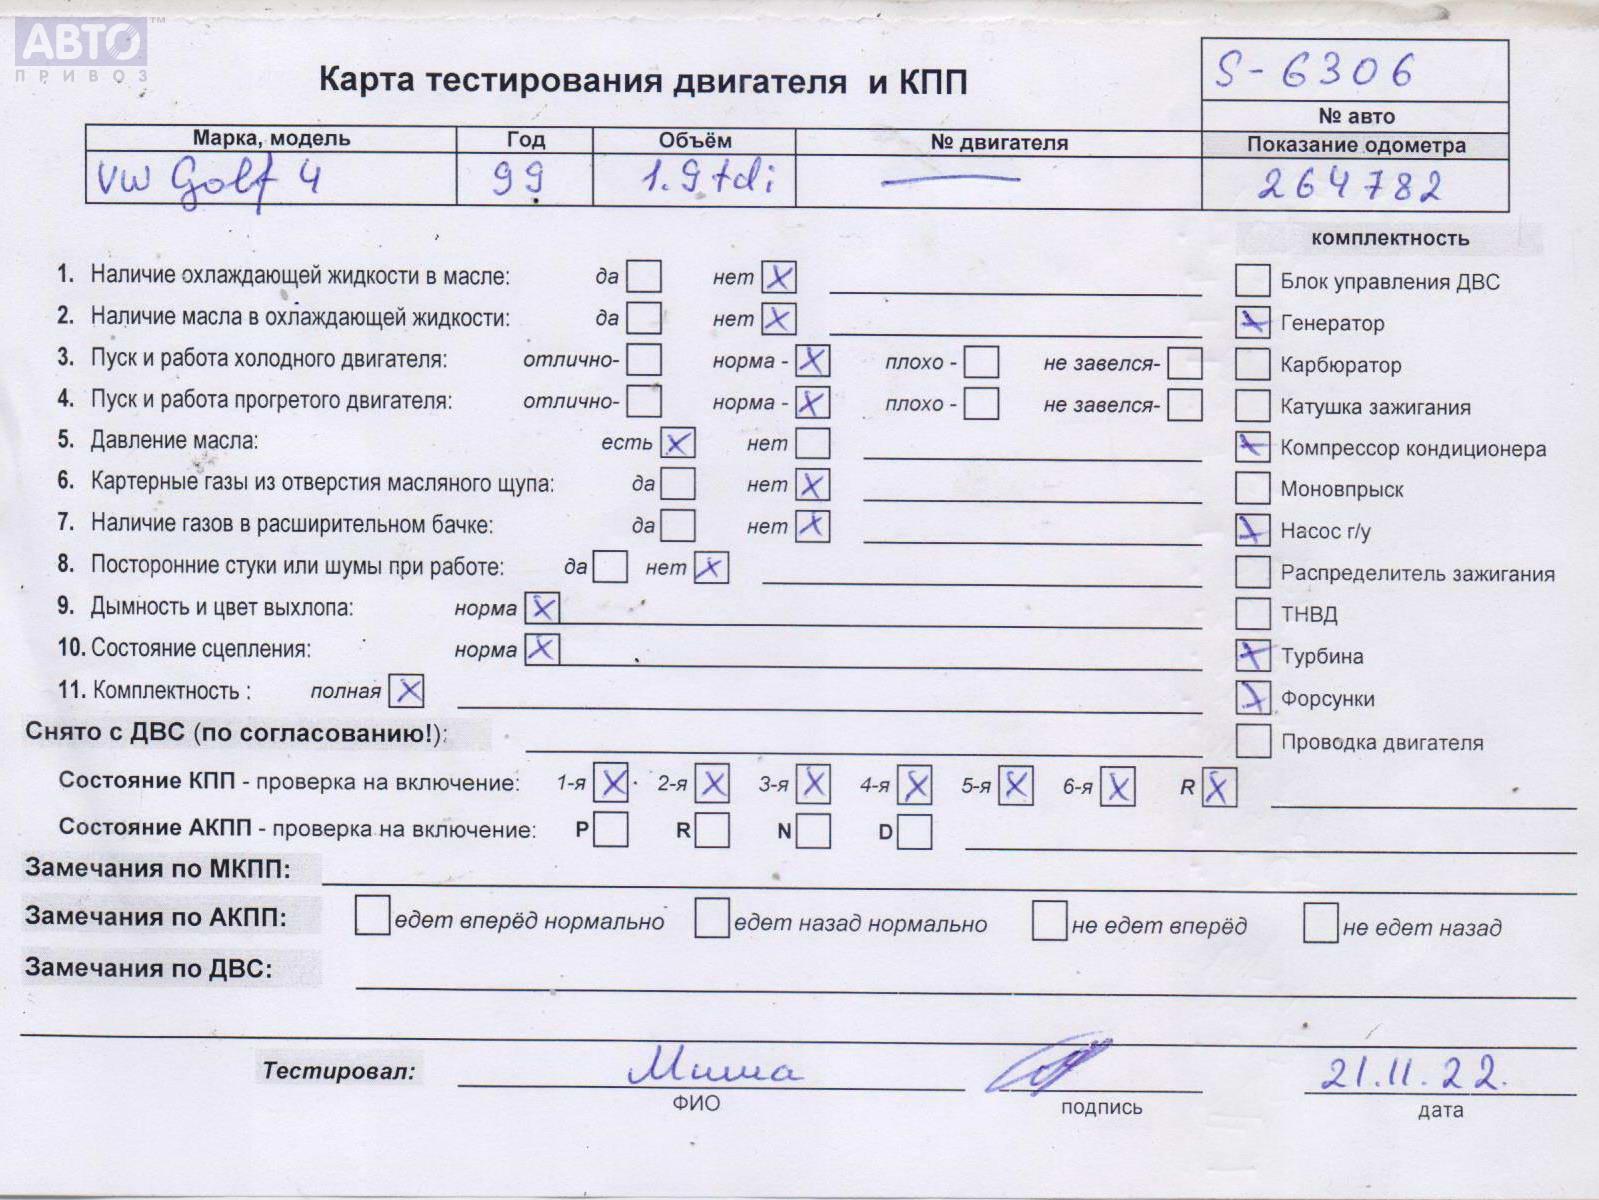 АВТО™
ПРИВОЗ
Карта тестирования двигателя и КПП
S-6306
№ авто
Марка, модель Год Объём № двигателя Показание одометра
VW Golf 4 99 1.9 tdi — 264782
комплектность
1. Наличие охлаждающей жидкости в масле: да нет X
Блок управления ДВС
2. Наличие масла в охлаждающей жидкости: да нет X
X Генератор
3. Пуск и работа холодного двигателя: отлично- норма - X плохо - не завелся-
Карбюратор
4. Пуск и работа прогретого двигателя: отлично- норма - X плохо - не завелся-
Катушка зажигания
5. Давление масла: есть X нет
X Компрессор кондиционера
6. Картерные газы из отверстия масляного щупа: да нет X
Моновпрыск
7. Наличие газов в расширительном бачке: да нет X
X Насос г/у
8. Посторонние стуки или шумы при работе: да нет X
Распределитель зажигания
9. Дымность и цвет выхлопа: норма X
ТНВД
10. Состояние сцепления: норма X
X Турбина
11. Комплектность : полная X
X Форсунки
Снято с ДВС (по согласованию!):
Проводка двигателя
Состояние КПП - проверка на включение: 1-я X 2-я X 3-я X 4-я X 5-я X 6-я X R X
Состояние АКПП - проверка на включение: P R N D
Замечания по МКПП:
Замечания по АКПП: едет вперёд нормально едет назад нормально не едет вперёд не едет назад
Замечания по ДВС:
Тестировал: Миша 21.11.22.
ФИО подпись дата